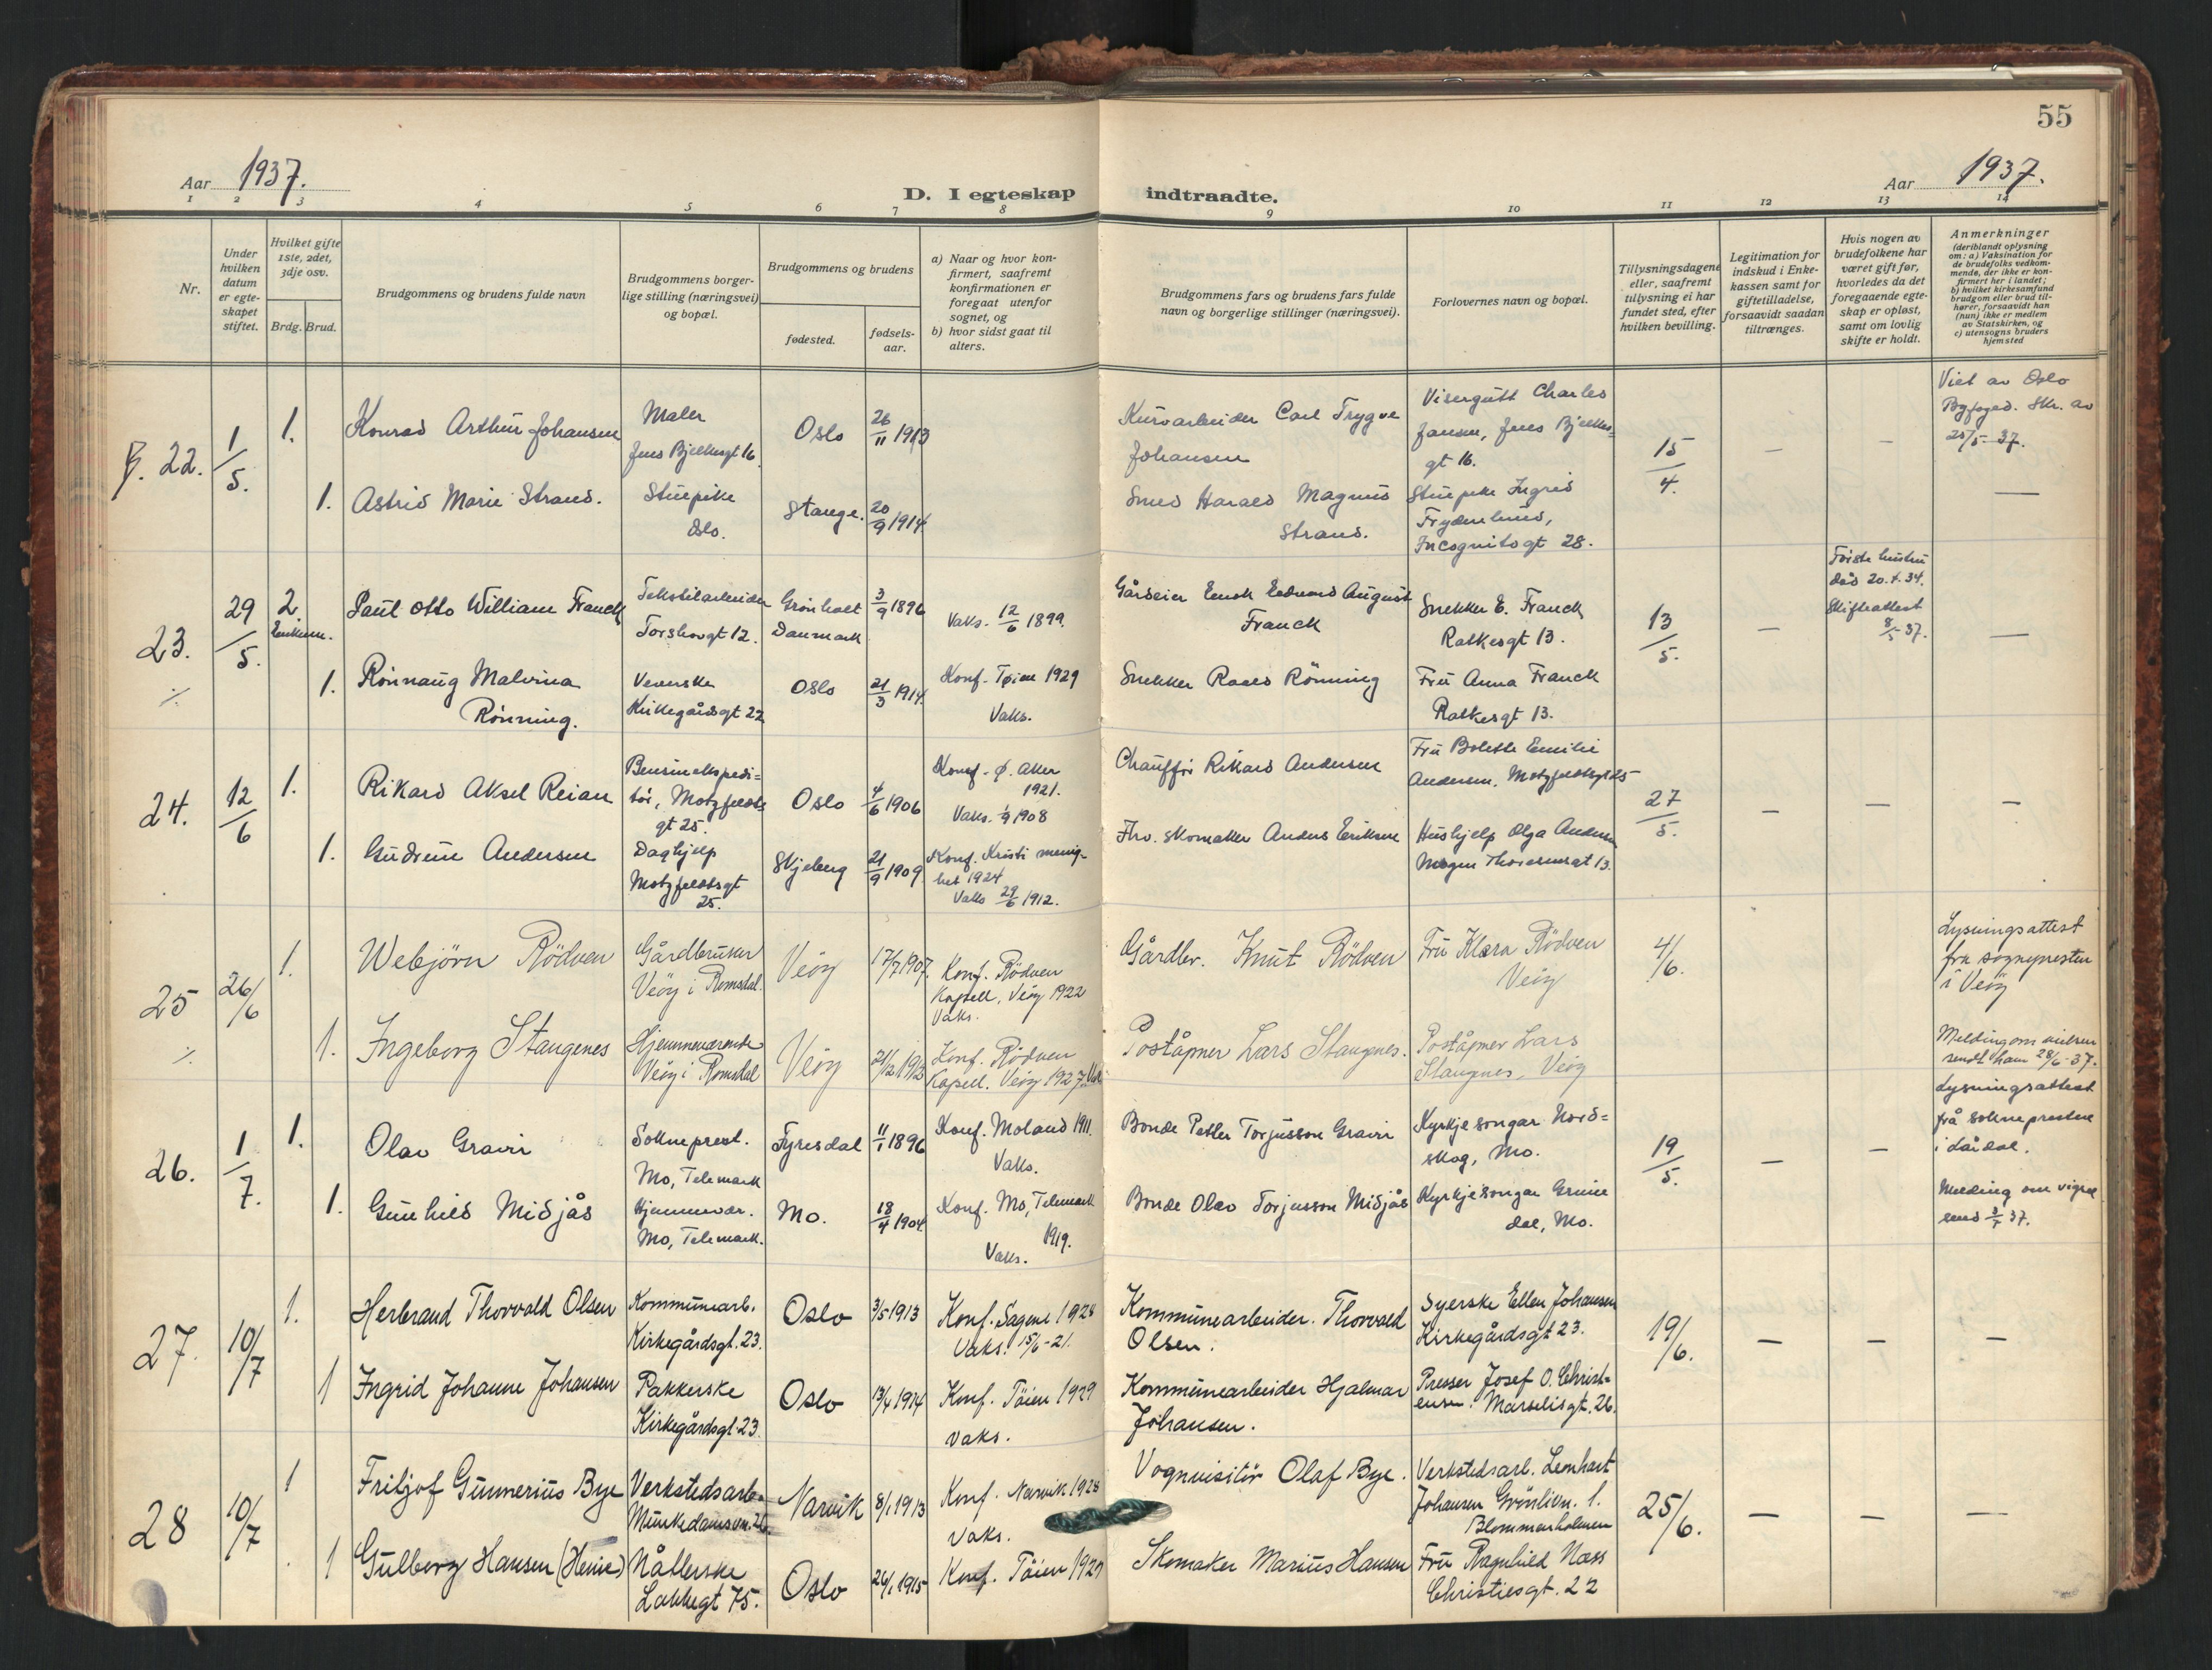 55
Aar 1937.
D. I egteskap indtraadte.
Aar 1937.
1 2 3 4 5 6 7 8 9 10 11 12 13 14
Nr.
Under hvilken datum er egte-skapet stiftet.
Hvilket gifte 1ste, 2det, 3dje osv.
Brdg. Brud.
Brudgommens og brudens fulde navn
Brudgommens borger-lige stilling (næringsvei) og bopæl.
Brudgommens og brudens
fødested.
fødsels-aar.
a) Naar og hvor kon-firmert, saafremt konfirmationen er foregaat utenfor sognet, og
b) hvor sidst gaat til alters.
Brudgommens fars og brudens fars fulde navn og borgerlige stillinger (næringsvei).
Forlovernes navn og bopæl.
Tillysningsdagene eller, saafremt tillysning ei har fundet sted, efter hvilken bevilling.
Legitimation for indskud i Enke-kassen samt for giftetilladelse, forsaavidt saadan tiltrænges.
Hvis nogen av brudefolkene har været gift før, hvorledes da det foregaaende egte-skap er opløst, samt om lovlig skifte er holdt.
Anmerkninger (deriblandt oplysning om: a) Vaksination for de brudefolks vedkom-mende, der ikke er kon-firmert her i landet; b) hvilket kirkesamfund brudgom eller brud til-hører, forsaavidt han (hun) ikke er medlem av Statskirken, og c) utensogns bruders hjemsted
22. 1/5. 1. Konrad Arthur Johansen
Maler Jens Bjelkesgt 16.
Oslo 26/11 1913
Kurvarbeider Carl Trygve Johansen
Visergutt Charles Jansen, Jens Bjelkes= gt 16.
15/4. — —
Viet av Oslo Byfoged. Skr. av 25/5 37.
1. Astrid Marie Strand.
Stuepike Oslo.
Stange. 20/9 1914
Smed Harald Magnus Strand.
Stuepike Ingrid Frydenlund, Incognitogt 28.
—
23. 29/5. 2. Enkem. Paul Otto William Franck
Tekstilarbeider Torshovgt 12.
Grönholt Danmark 3/9 1896
Vaks. 12/6 1899.
Gårdeier Enok Edvard August Franck
Snekker E. Franck Ratkesgt 13.
13/5. —
Første hustru död 20.4.34. Skifteattest 8/5 37.
—
1. Rönnaug Malvina Rönning.
Veverske Kirkegårdsgt 22
Oslo 21/3 1914.
Konf. Tøien 1929 Vaks.
Snekker Roald Rönning
Fru Anna Franck Ratkesgt 13.
24. 12/6 1. Rikard Aksel Reian
Bensinekspedi= tör, Motzfeldts gt 25.
Oslo 4/6 1906
Konf. Ø. Aker 1921. Vaks. 1/9 1908
Chauffør Rikard Andersen
Fru Bolette Emilie Andersen. Motzfeldtsgt 25
27/5. — — —
1. Gudrun Andersen
Daghjelp Motzfeldtsgt 25.
Skjeberg 21/9 1909
Konf. Kristi menig-het 1924 Vaks 29/6 1912.
Fhv. skomaker Anders Eriksen
Hushjelp Olga Andersen Mogens Thorsensgt 13.
25 26/6 1. Webjörn Rödven
Gårdbruker Veöy i Romsdal.
Veöy 17/7 1907.
Konf. Rödven Kapell, Veöy 1922 Vaks.
Gårdbr. Knut Rödven
Fru Klara Rödven Veöy
4/6.
Lysningsattest fra sognepresten i Veöy
1. Ingeborg Stangenes
Hjemmeværende Veöy i Romsdal
Veöy 21/12 1913
Konf. Rödven Kapell. Veöy 1927. Vak
Poståpner Lars Stangnes.
Poståpner Lars Stangnes, Veöy
Melding om vielsen sendt ham 28/6-37.
26. 1/7. 1. Olav Gravir
Sokneprest. Mo, Telemark
Fyresdal 11/1 1896
Konf. Moland 1911. Vaks.
Bonde Petter Torjusson Gravir
Kyrkjesongar Nord= skog, Mo.
19/5. — —
Lysningsattest frå soknepresten i Lårdal.
1. Gunhild Midjås
Hjemmevær. Mo, Telemark.
Mo. 18/4 1904
Konf. Mo, Telemark 1919. Vaks.
Bonde Olav Torjusson Midjås
Kyrkjesongar Grune dal, Mo.
Melding om vigsel send 3/7 37.
27. 10/7 1. Herbrand Thorvald Olsen
Kommunearb. Kirkegårdsgt. 23.
Oslo 3/5 1913
Konf. Sagene 1928 Vaks. 15/6-21.
Kommunearbeider. Thorvald Olsen.
Syerske Ellen Johansen Kirkegårdsgt 23.
19/6. — — —
1 Ingrid Johanne Johansen
Pakkerske Kirkegårdsgt. 23.
Oslo 13/4 1914
Konf. Töien 1929 vaks.
Kommunearbeider Hjalmar Johansen.
Presser Josef O. Christ= ensen. Marselisgt. 26.
28 10/7 1 Fritjof Gunnerius Bye
Verkstedsarb. Munkedamsvn. 26.
Narvik 8/1 1913
Konf. Narvik 1928 vaks.
Vognvisitör Olaf Bye.
Verkstedsarb. Lenhart Johansen Grönlivn. 1. Blommenholmen
25/6. — — —
1 Gulborg Hansen (Henie)
Nåtlerske Lakkegt 75.
Oslo 26/1 1915
Konf. Töien 1929
Skomaker Marius Hansen
Fru Ragnhild Næss Christiesgt. 22